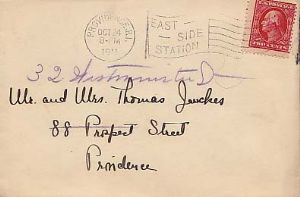 PROVIDENCE, R.I.
OCT 24
8-PM
1911
EAST
SIDE
STATION
32 Westminster
Mr. and Mrs. Thomas Jenckes
88 Prospect Street
Providence